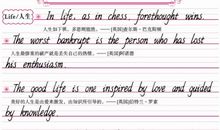 Life/人生
In life, as in chess, forethought wins.
人生如下棋，深思则能胜。——[英国]查尔斯·巴克斯顿
The worst bankrupt is the person who has lost
his enthusiasm.
人生最惨重的破产就是丧失自己的热情。——[英国]阿诺德
The good life is one inspired by love and guided
by knowledge.
美好的人生是由爱来激发，由知识所引导的。——[英国]伯特兰·罗素